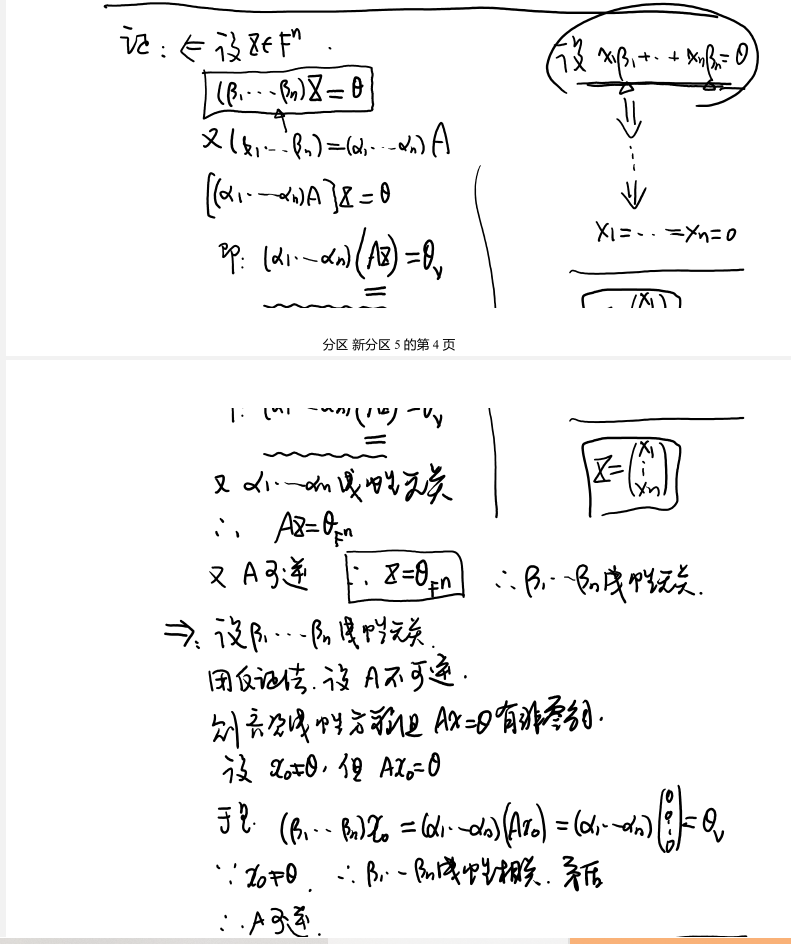 记: ⇐ 设 X∈Fⁿ.
(β₁···βₙ)X=θ
又(β₁···βₙ)=(α₁···αₙ)A
[(α₁···αₙ)A]X=θ
即: (α₁···αₙ)(AX)=θᵥ
设 x₁β₁+··+xₙβₙ=θ
⇓
⋮
⇓
x₁=···=xₙ=0
分区 新分区 5 的第 4 页
X=(x₁ ⋮ xₙ)
又 α₁···αₙ线性无关
∴ AX=θ_Fⁿ
又 A可逆 ∴ X=θ_Fⁿ ∴ β₁···βₙ线性无关.
⇒: 设β₁···βₙ线性无关.
用反证法. 设 A不可逆.
则齐次线性方程组 Ax=θ有非零解.
设 x₀≠θ, 但 Ax₀=θ
于是 (β₁···βₙ)x₀=(α₁···αₙ)(Ax₀)=(α₁···αₙ)(0 0 ⋮ 0)=θᵥ
∵ x₀≠θ. ∴ β₁···βₙ线性相关. 矛盾
∴ A可逆.